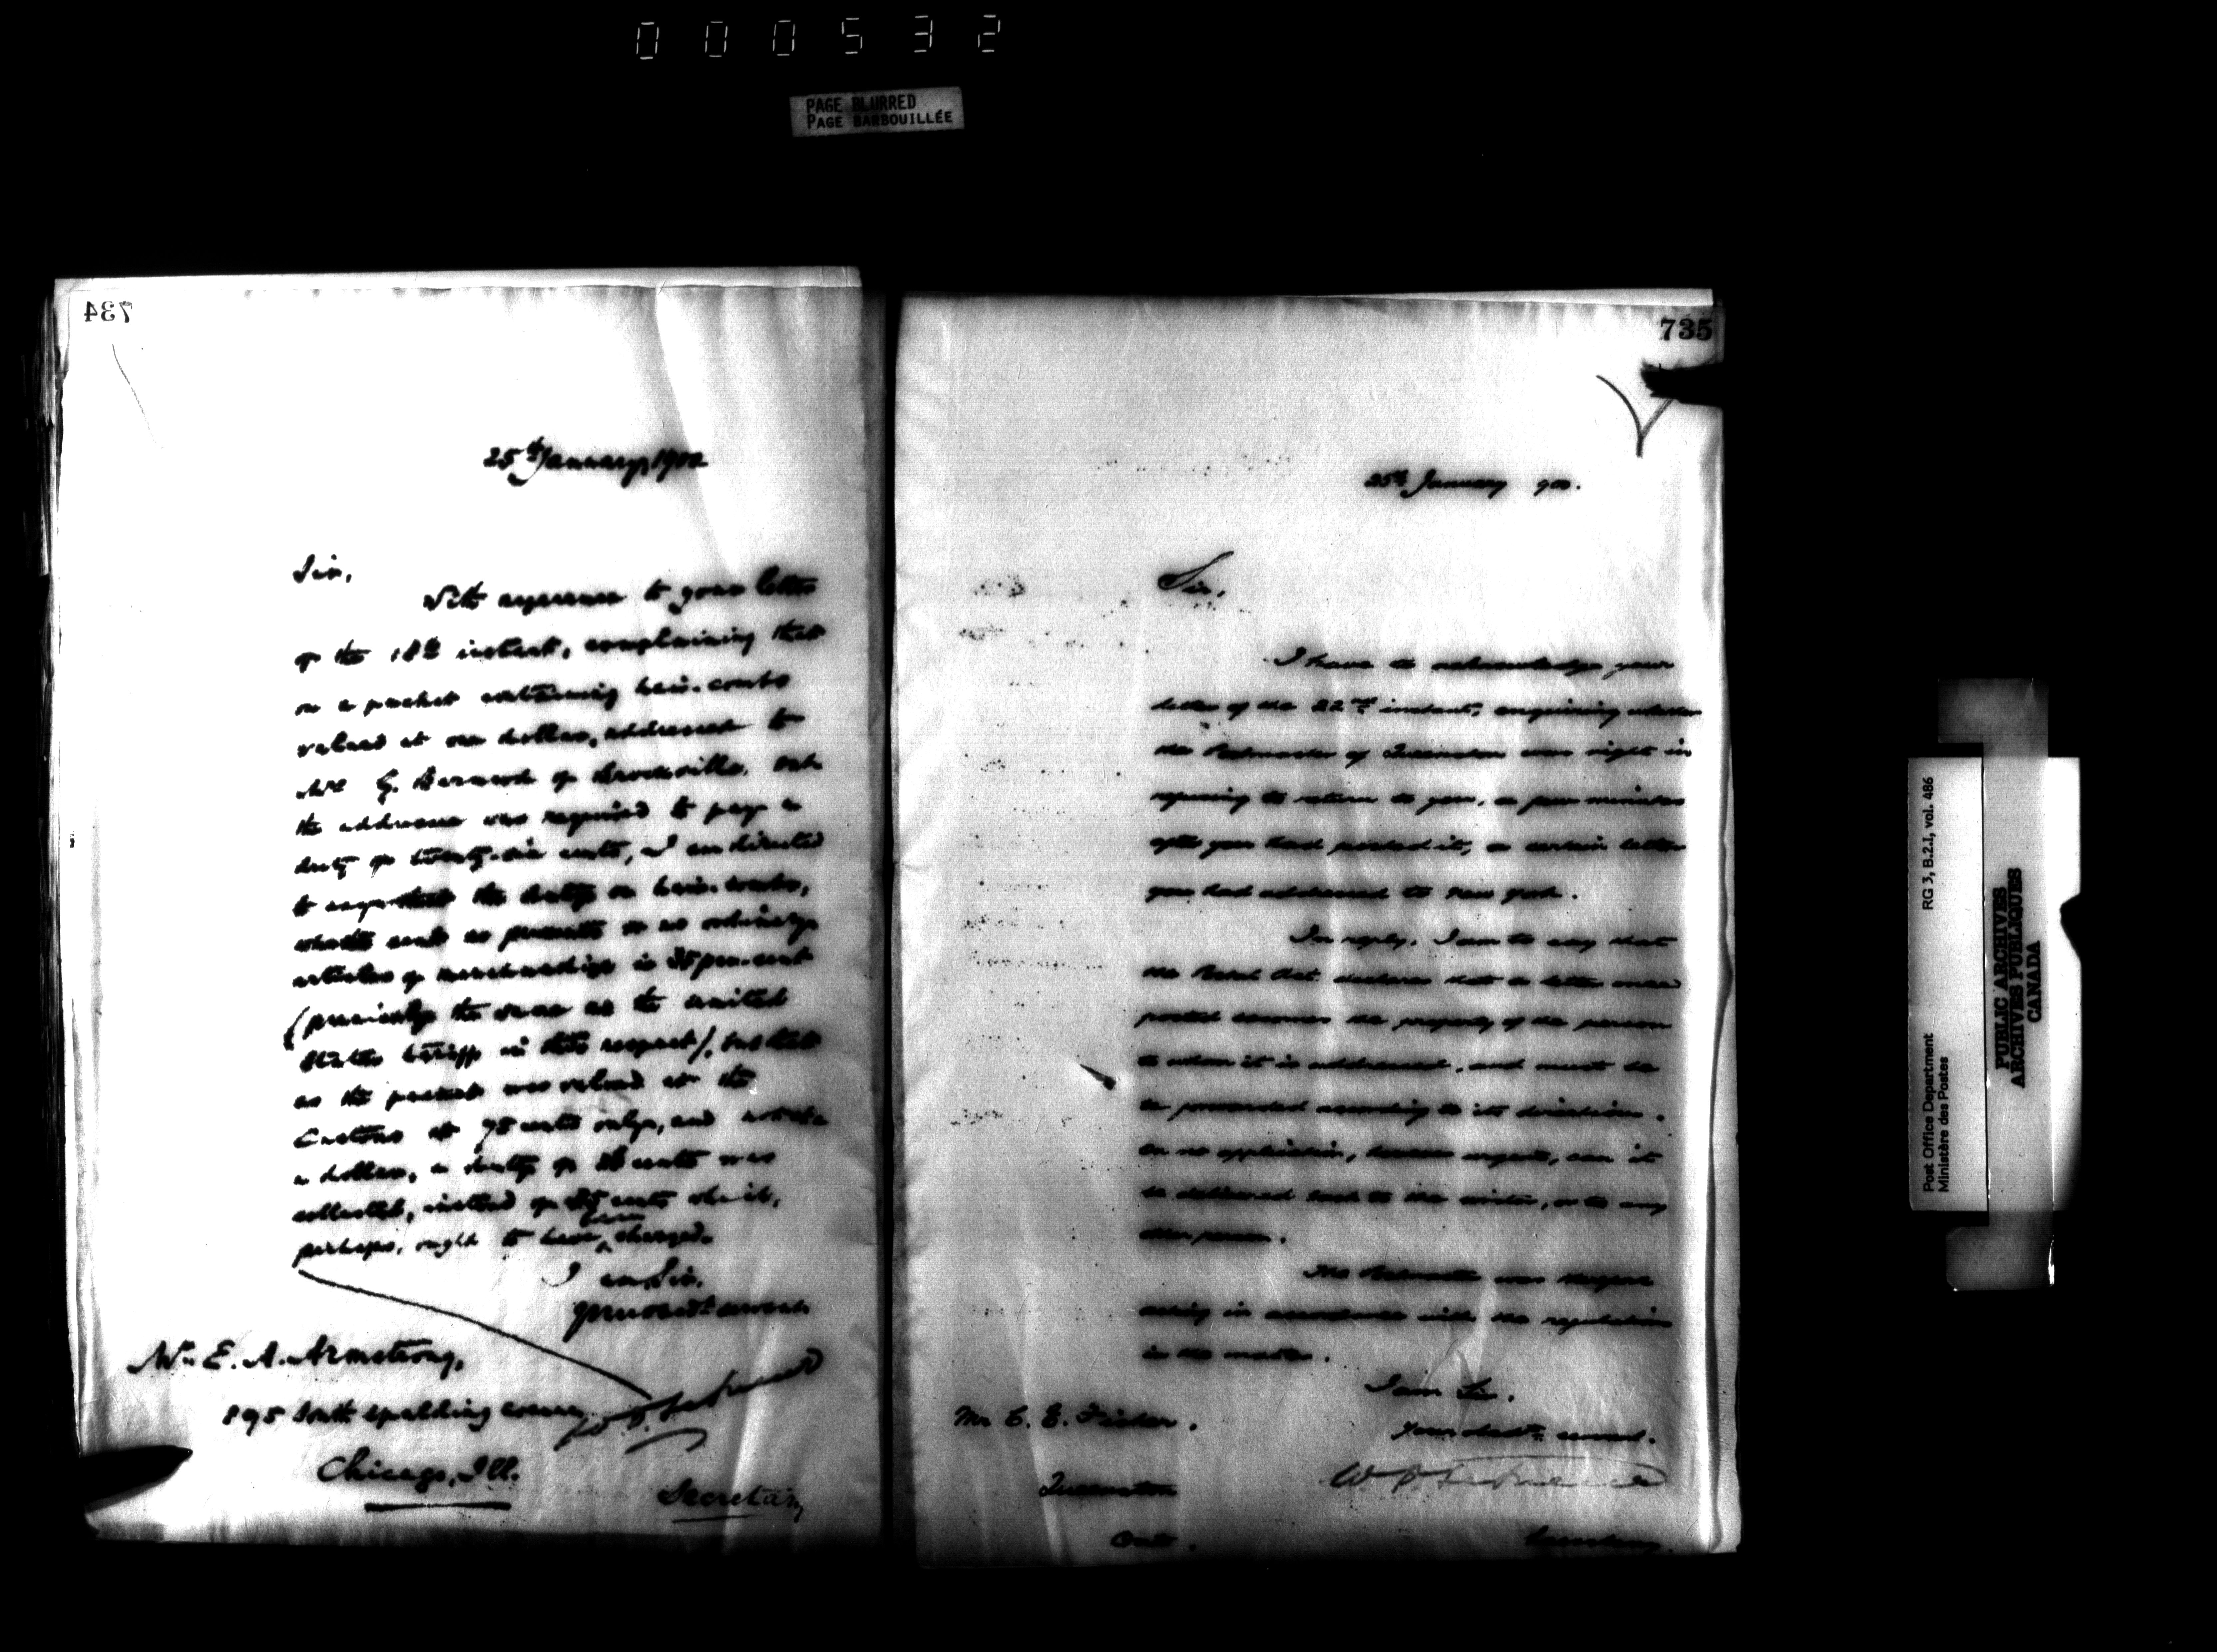 000532
PAGE BLURRED
PAGE BARBOUILLÉE
734
25th January, 1900
Sir,
With reference to your letter
of the 18th instant, complaining that
on a packet containing hair-combs
valued at one dollar, addressed to
Mr G. of Ont.
the addressee was required to pay a
duty of twenty-six cents, I am directed
to say that the duty on hair-combs,
whether sent as presents or as ordinary
articles of merchandise is 35 per-cent
(precisely the same as the United
States tariff in this respect), but that
as the packet was valued at the
Customs at 75 cents only, and not at
a dollar, a duty of 26 cents was
collected, instead of 35 cents which,
perhaps, ought to have been charged.
I am, Sir,
Your obedt. servant.
Mr. E. A. Armstrong,
895 South Spalding Avenue
Chicago, Ill.
Secretary
735
25th January 900.
Sir,
I have to acknowledge your
letter of the 22nd instant, enquiring whether
the Postmaster of Queenston was right in
refusing to return to you, a few minutes
after you had posted it, a certain letter
you had addressed to New York.
In reply, I am to say that
the Postal Act declares that a letter once
posted becomes the property of the person
to whom it is addressed, and must be
be forwarded according to its direction.
On no application, however urgent, can it
be delivered back to the writer, or to any
other person.
The Postmaster was therefore
acting in accordance with the regulation
in the matter.
I am Sir,
Your obedt. servant.
Mr C. E. Fisher.
Queenston
Ont.
Secretary.
RG 3, B.2.1, vol. 486
Post Office Department
Ministère des Postes
PUBLIC ARCHIVES
ARCHIVES PUBLIQUES
CANADA